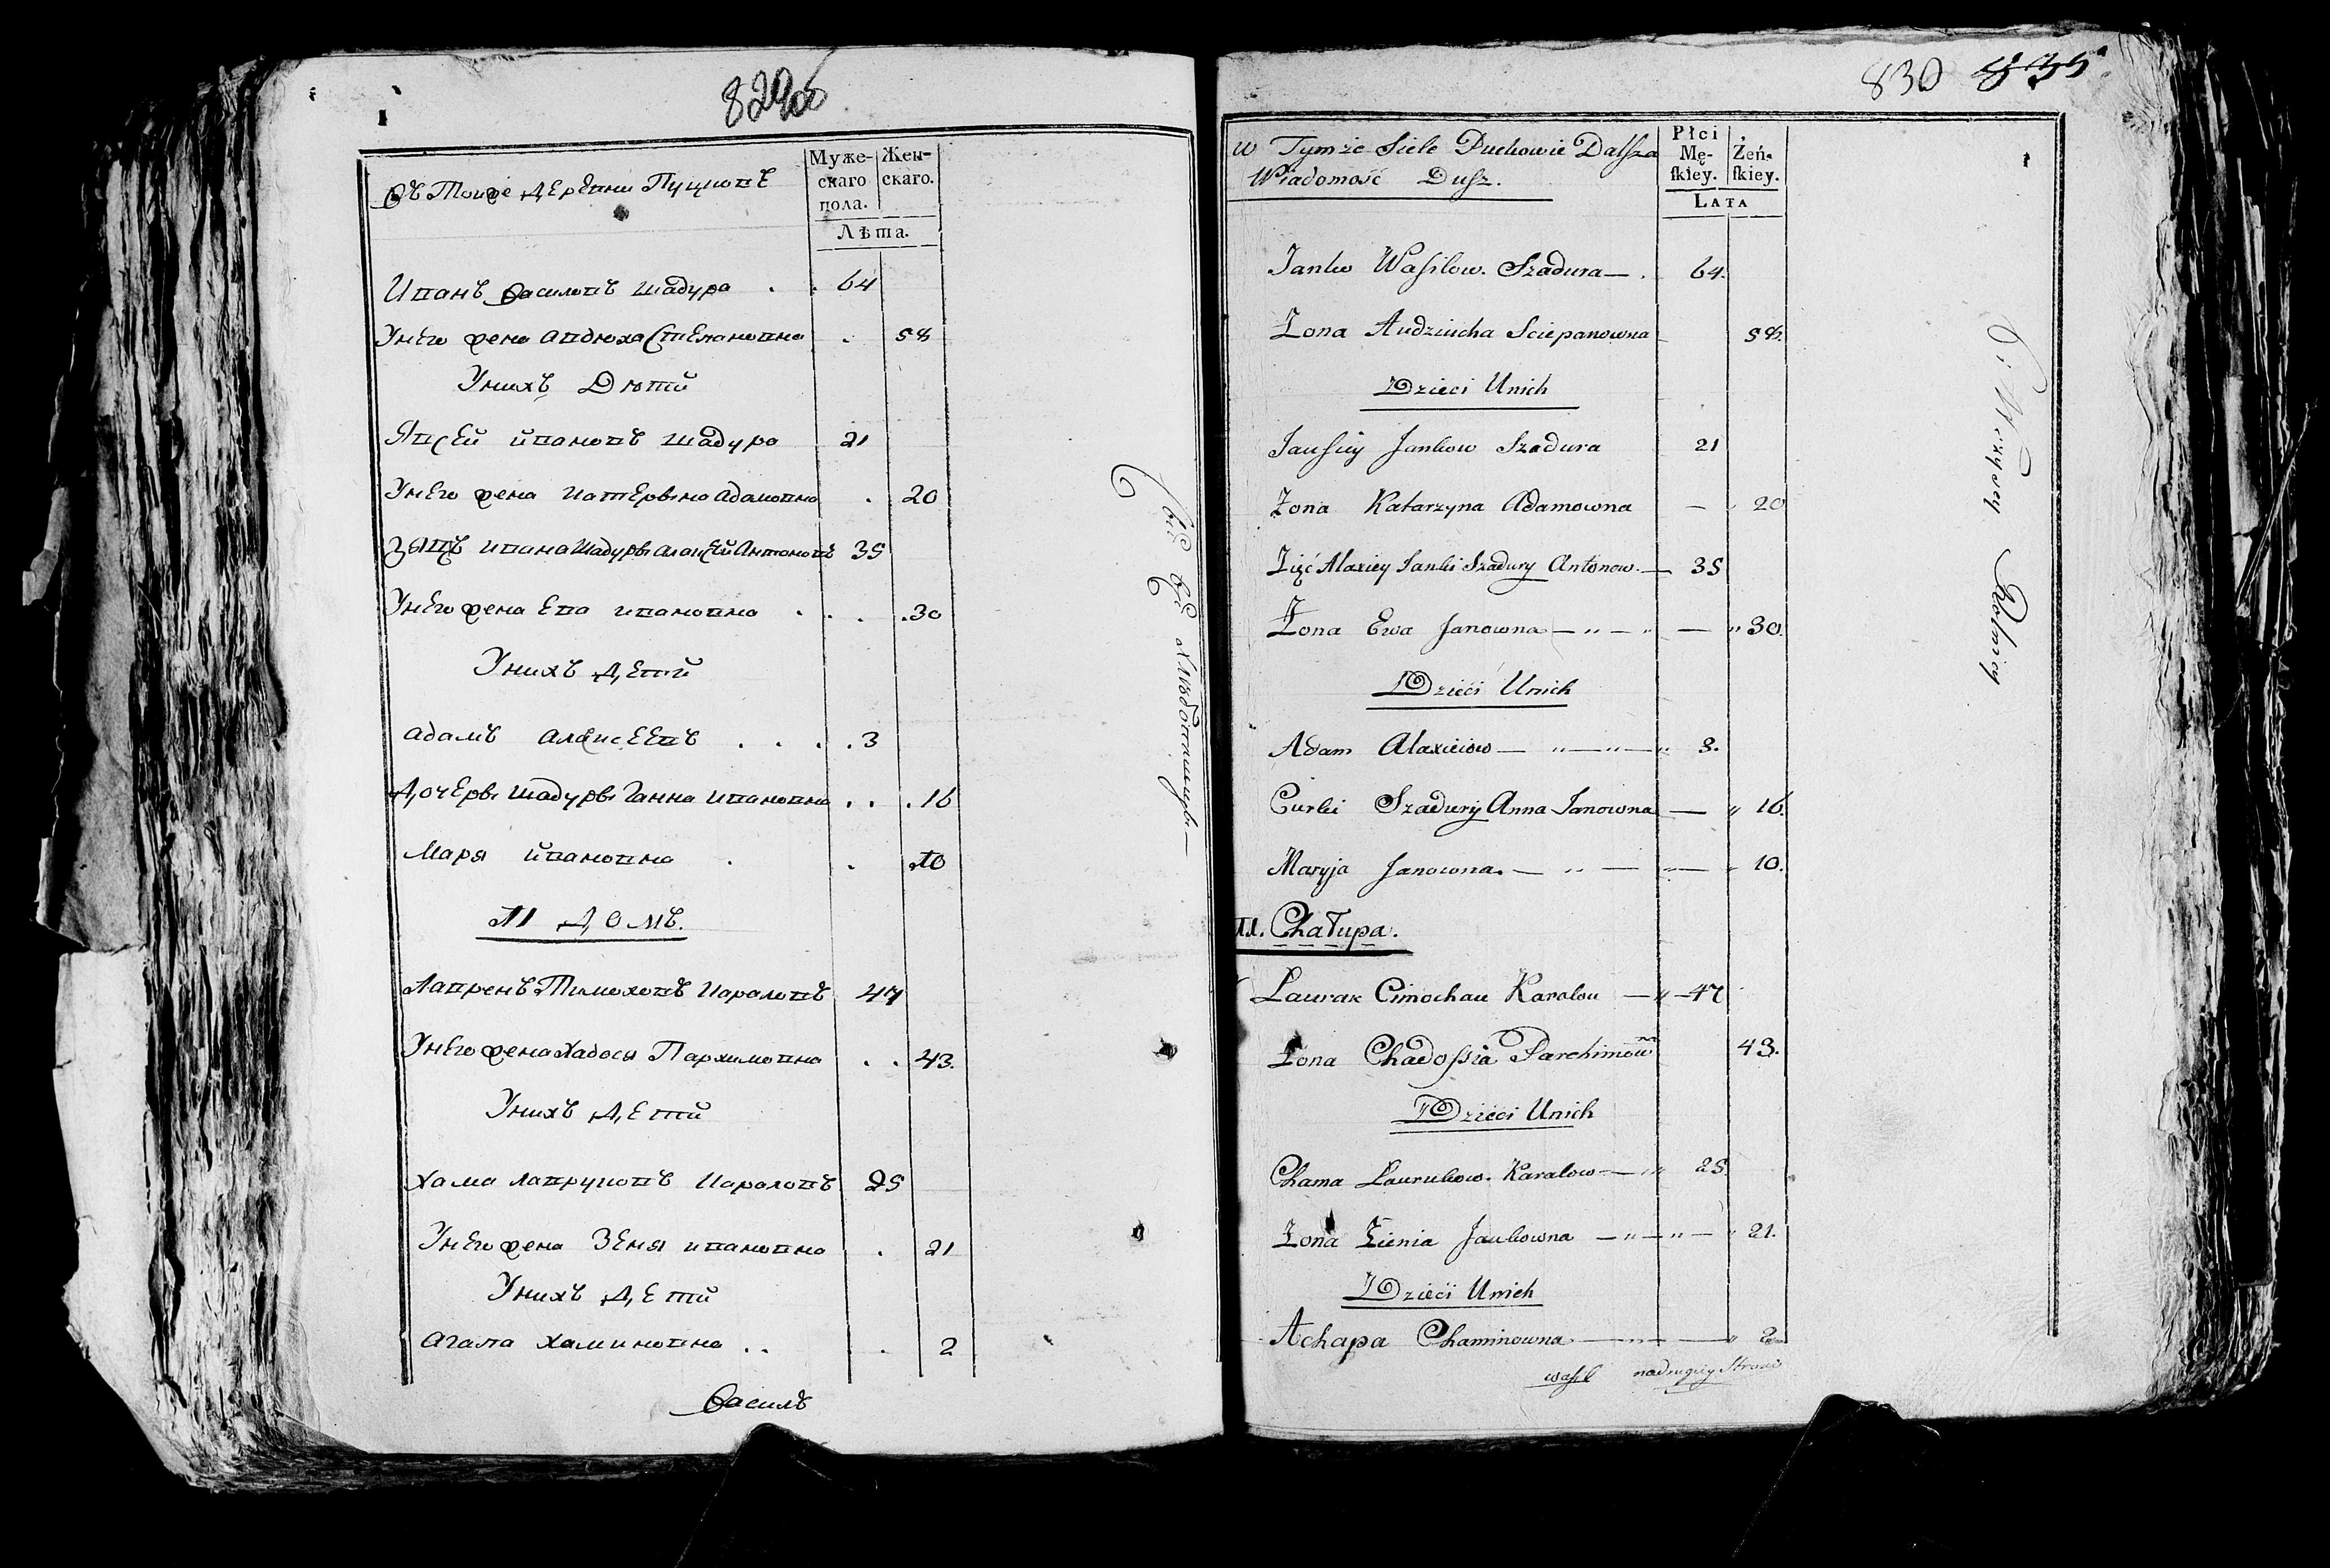 829об
Въ Тойже деревни Пуцкове
Муже-
скаго
пола.
Жен-
скаго.
Лѣта.
Иванъ Василовъ Шадура . . 64
Унего жена Авдюха Степановна . 58
Унихъ Дѣтй
Явсей йвановъ Шадура 21
Унего жена Катерына Адамовна . 20
Зять Ивана Шадуры Алаксей Антоновъ 35
Унего жена Ева ивановна . . . .30
Унихъ детй
Адамъ Алаксеевъ . . . .3
Дочеры Шадуры Ганна Ивановна . . .16
Маря йвановна . . .10
11 Домъ.
Лавренъ Тимоховъ Караловъ 47
Унего жена Хадося Пархимовна . . 43.
Унихъ детй
Хама Лавруковъ Караловъ 25
Унего жена Зеня ивановна . 21
Унихъ детй
Агапа Хаминовна . . . 2
Василь
830 835
W Tymże Siele Puckowie Dalsza
Wiadomość Dusz.
Płci
Mę-
skiey.
Żeń-
skiey.
LATA
Janko Wasilow. Szadura — . 64.
Żona Audziucha Sciepanowna 58.
Dzieci Unich
Jausiey Jankow Szadura 21
Żona Katarzyna Adamowna — 20
Zięć Alaxiey Janki Szadury Antonow. — 35
Żona Ewa Janowna — " — " — " 30.
Dzieci Unich
Adam Alaxieiow — " — " — " 3.
Curki Szadury Anna Janowna — " 16.
Maryja Janowna. — " — " — " 10.
11. Chałupa.
Laurak Cimochau Karalou — " — 47
Żona Chadossia Parchimowna 43.
Dzieci Unich
Chama Laurukow. Karalow — " 25.
Żona Zienia Jankowna — " — " — " 21.
Dzieci Unich
Achapa Chaminowna — " — — " 2
Wasil nadrugiey Stronie